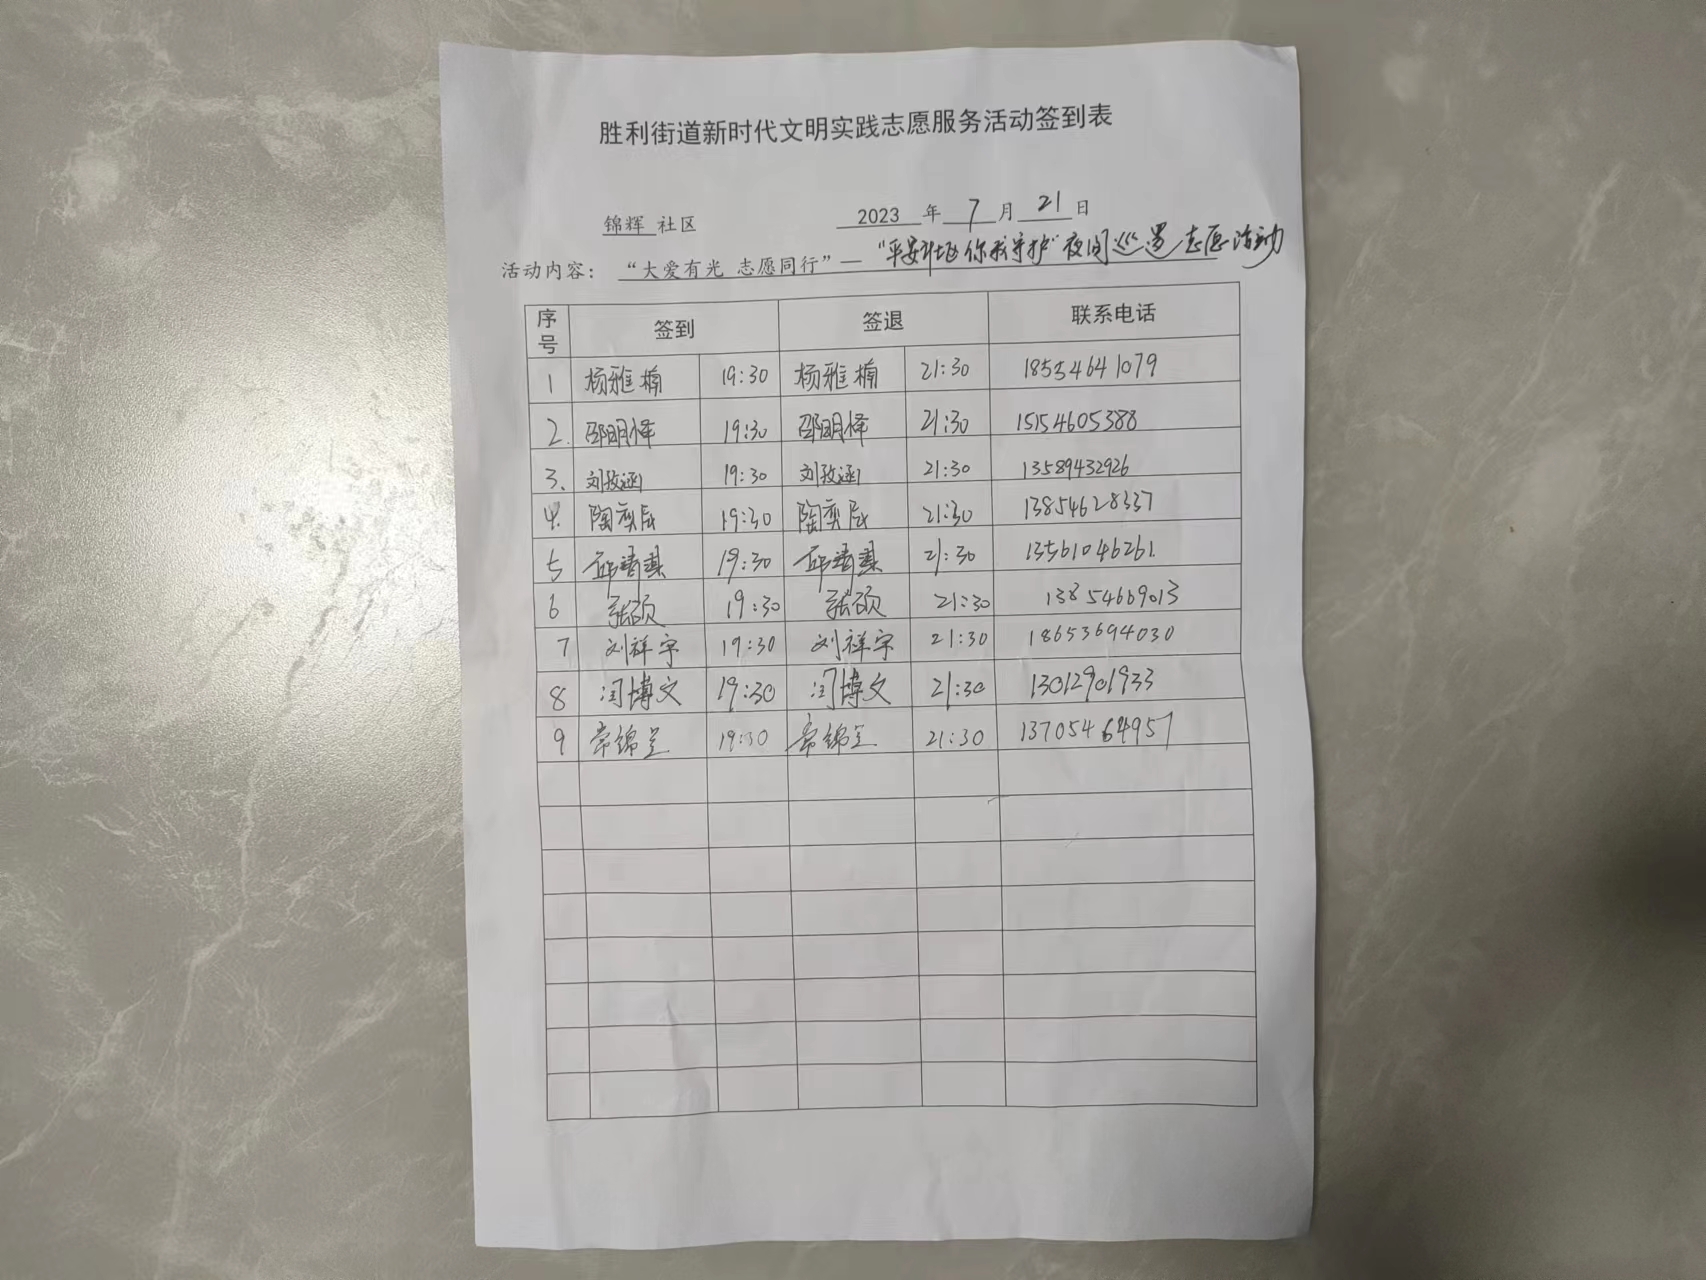 胜利街道新时代文明实践志愿服务活动签到表
锦辉 社区 2023 年 7 月 21 日
活动内容： “大爱有光 志愿同行”— “平安社区 你我守护” 夜间巡逻志愿活动
序号 签到 签退 联系电话
1 杨雅楠 19:30 杨雅楠 21:30 18554641079
2. 邵明怿 19:30 邵明怿 21:30 15154605388
3. 刘孜涵 19:30 刘孜涵 21:30 13589432926
4. 陶奕辰 19:30 陶奕辰 21:30 13854628337
5 邱清琪 19:30 邱清琪 21:30 13561046261.
6 张硕 19:30 张硕 21:30 13854669013
7 刘祥宇 19:30 刘祥宇 21:30 18653694030
8 闫博文 19:30 闫博文 21:30 13012901933
9 常锦呈 19:30 常锦呈 21:30 13705464957